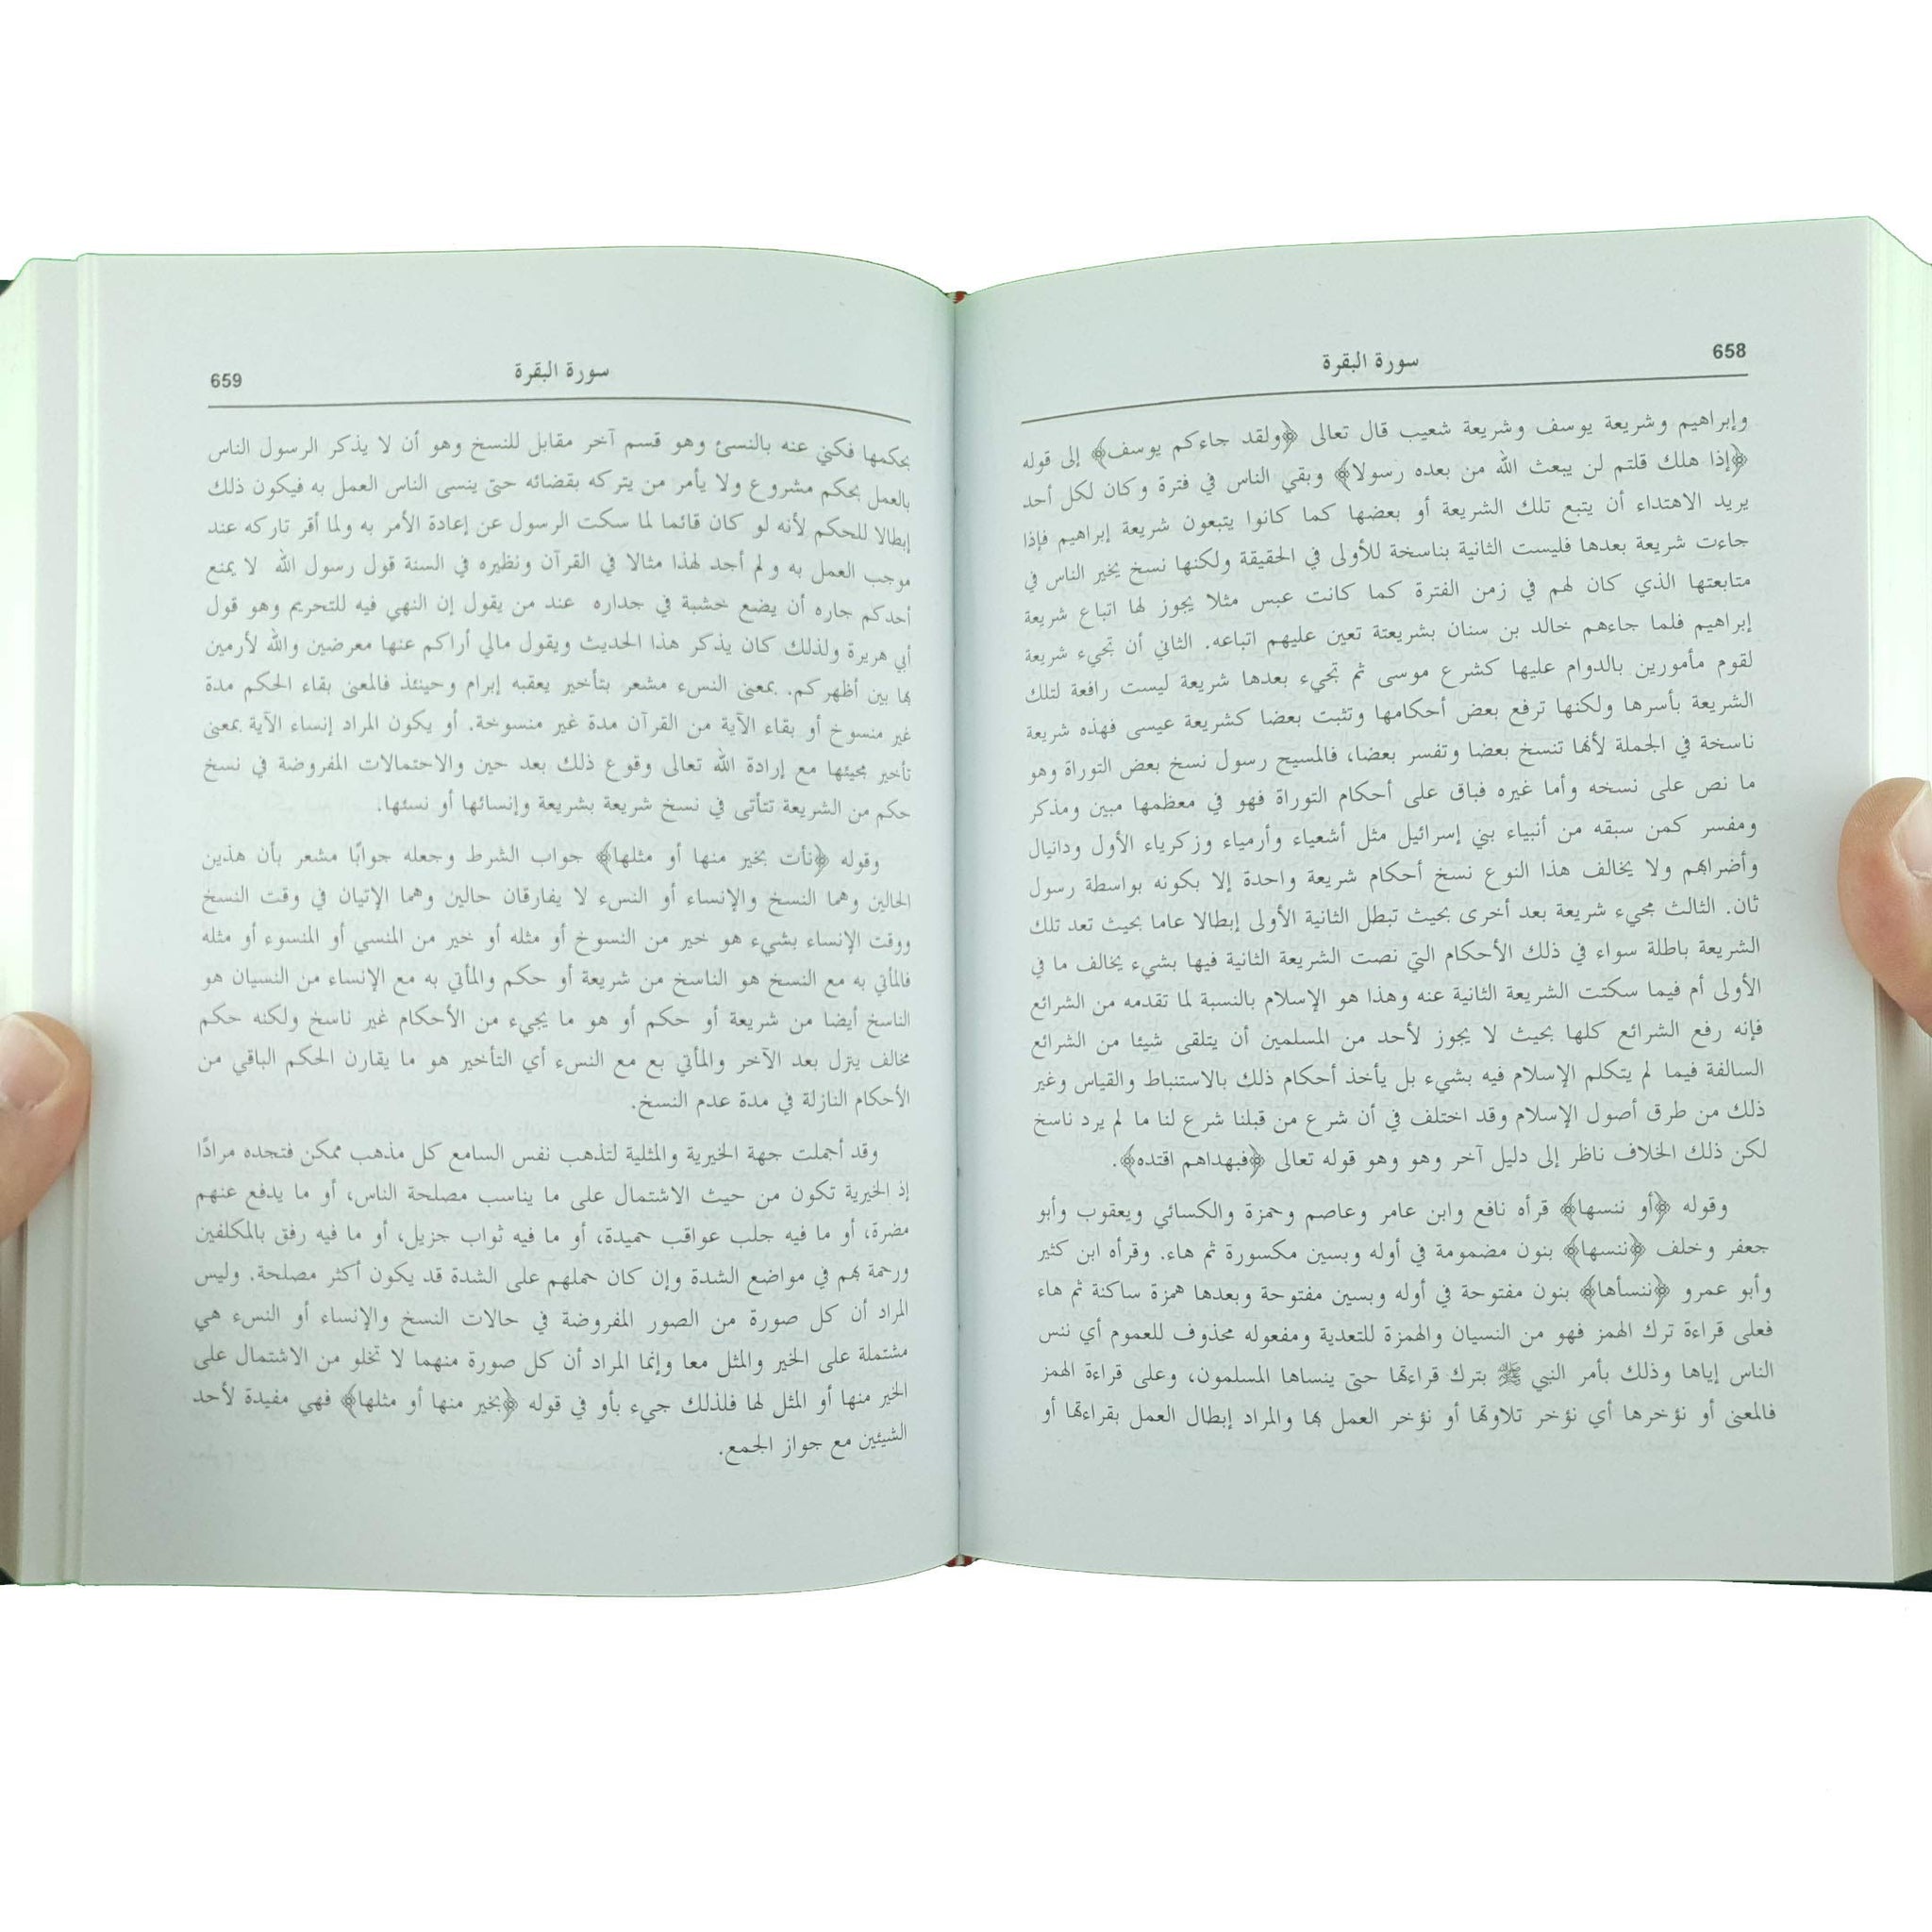 658
سورة البقرة
وإبراهيم وشريعة يوسف وشريعة شعيب قال تعالى ﴿ولقد جاءكم يوسف﴾ إلى قوله
﴿إذا هلك قلتم لن يبعث الله من بعده رسولا﴾ وبقي الناس في فترة وكان لكل أحد
يريد الاهتداء أن يتبع تلك الشريعة أو بعضها كما كانوا يتبعون شريعة إبراهيم فإذا
جاءت شريعة بعدها فليست الثانية بناسخة للأولى في الحقيقة ولكنها نسخ يخير الناس في
متابعتها الذي كان لهم في زمن الفترة كما كانت عبس مثلا يجوز لها اتباع شريعة
إبراهيم فلما جاءهم خالد بن سنان بشريعتة تعين عليهم اتباعه. الثاني أن تجيء شريعة
لقوم مأمورين بالدوام عليها كشرع موسى ثم تجيء بعدها شريعة ليست رافعة لتلك
الشريعة بأسرها ولكنها ترفع بعض أحكامها وتثبت بعضا كشريعة عيسى فهذه شريعة
ناسخة في الجملة لأنها تنسخ بعضا وتفسر بعضا، فالمسيح رسول نسخ بعض التوراة وهو
ما نص على نسخه وأما غيره فباق على أحكام التوراة فهو في معظمها مبين ومذكر
ومفسر كمن سبقه من أنبياء بني إسرائيل مثل أشعياء وأرمياء وزكرياء الأول ودانيال
وأضرابهم ولا يخالف هذا النوع نسخ أحكام شريعة واحدة إلا بكونه بواسطة رسول
ثان. الثالث مجيء شريعة بعد أخرى بحيث تبطل الثانية الأولى إبطالا عاما بحيث تعد تلك
الشريعة باطلة سواء في ذلك الأحكام التي نصت الشريعة الثانية فيها بشيء يخالف ما في
الأولى أم فيما سكتت الشريعة الثانية عنه وهذا هو الإسلام بالنسبة لما تقدمه من الشرائع
فإنه رفع الشرائع كلها بحيث لا يجوز لأحد من المسلمين أن يتلقى شيئا من الشرائع
السالفة فيما لم يتكلم الإسلام فيه بشيء بل يأخذ أحكام ذلك بالاستنباط والقياس وغير
ذلك من طرق أصول الإسلام وقد اختلف في أن شرع من قبلنا شرع لنا ما لم يرد ناسخ
لكن ذلك الخلاف ناظر إلى دليل آخر وهو وهو قوله تعالى ﴿فبهداهم اقتده﴾.
وقوله ﴿أو ننسها﴾ قرأه نافع وابن عامر وعاصم وحمزة والكسائي ويعقوب وأبو
جعفر وخلف ﴿ننسها﴾ بنون مضمومة في أوله وبسين مكسورة ثم هاء. وقرأه ابن كثير
وأبو عمرو ﴿ننسأها﴾ بنون مفتوحة في أوله وبسين مفتوحة وبعدها همزة ساكنة ثم هاء
فعلى قراءة ترك الهمز فهو من النسيان والهمزة للتعدية ومفعوله محذوف للعموم أي ننس
الناس إياها وذلك بأمر النبي ﷺ بترك قراءتها حتى ينساها المسلمون، وعلى قراءة الهمز
فالمعنى أو نؤخرها أي نؤخر تلاوتها أو نؤخر العمل بها والمراد إبطال العمل بقراءتها أو
659
سورة البقرة
بحكمها فكني عنه بالنسئ وهو قسم آخر مقابل للنسخ وهو أن لا يذكر الرسول الناس
بالعمل بحكم مشروع ولا يأمر من يتركه بقضائه حتى ينسى الناس العمل به فيكون ذلك
إبطالا للحكم لأنه لو كان قائما لما سكت الرسول عن إعادة الأمر به ولما أقر تاركه عند
موجب العمل به ولم أجد لهذا مثالا في القرآن ونظيره في السنة قول رسول الله لا يمنع
أحدكم جاره أن يضع خشبة في جداره عند من يقول إن النهي فيه للتحريم وهو قول
أبي هريرة ولذلك كان يذكر هذا الحديث ويقول مالي أراكم عنها معرضين والله لأرمين
بها بين أظهركم. بمعنى النسء مشعر بتأخير يعقبه إبرام وحينئذ فالمعنى بقاء الحكم مدة
غير منسوخ أو بقاء الآية من القرآن مدة غير منسوخة. أو يكون المراد إنساء الآية بمعنى
تأخير مجيئها مع إرادة الله تعالى وقوع ذلك بعد حين والاحتمالات المفروضة في نسخ
حكم من الشريعة تتأتى في نسخ شريعة بشريعة وإنسائها أو نسئها.
وقوله ﴿نأت بخير منها أو مثلها﴾ جواب الشرط وجعله جوابًا مشعر بأن هذين
الحالين وهما النسخ والإنساء أو النسء لا يفارقان حالين وهما الإتيان في وقت النسخ
ووقت الإنساء بشيء هو خير من النسوخ أو مثله أو خير من المنسي أو المنسوء أو مثله
فالمأتي به مع النسخ هو الناسخ من شريعة أو حكم والمأتي به مع الإنساء من النسيان هو
الناسخ أيضا من شريعة أو حكم أو هو ما يجيء من الأحكام غير ناسخ ولكنه حكم
مخالف ينزل بعد الآخر والمأتي بع مع النسء أي التأخير هو ما يقارن الحكم الباقي من
الأحكام النازلة في مدة عدم النسخ.
وقد أجملت جهة الخيرية والمثلية لتذهب نفس السامع كل مذهب ممكن فتجده مرادًا
إذ الخيرية تكون من حيث الاشتمال على ما يناسب مصلحة الناس، أو ما يدفع عنهم
مضرة، أو ما فيه جلب عواقب حميدة، أو ما فيه ثواب جزيل، أو ما فيه رفق بالمكلفين
ورحمة بهم في مواضع الشدة وإن كان حملهم على الشدة قد يكون أكثر مصلحة. وليس
المراد أن كل صورة من الصور المفروضة في حالات النسخ والإنساء أو النسء هي
مشتملة على الخير والمثل معا وإنما المراد أن كل صورة منهما لا تخلو من الاشتمال على
الخير منها أو المثل لها فلذلك جيء بأو في قوله ﴿بخير منها أو مثلها﴾ فهي مفيدة لأحد
الشيئين مع جواز الجمع.